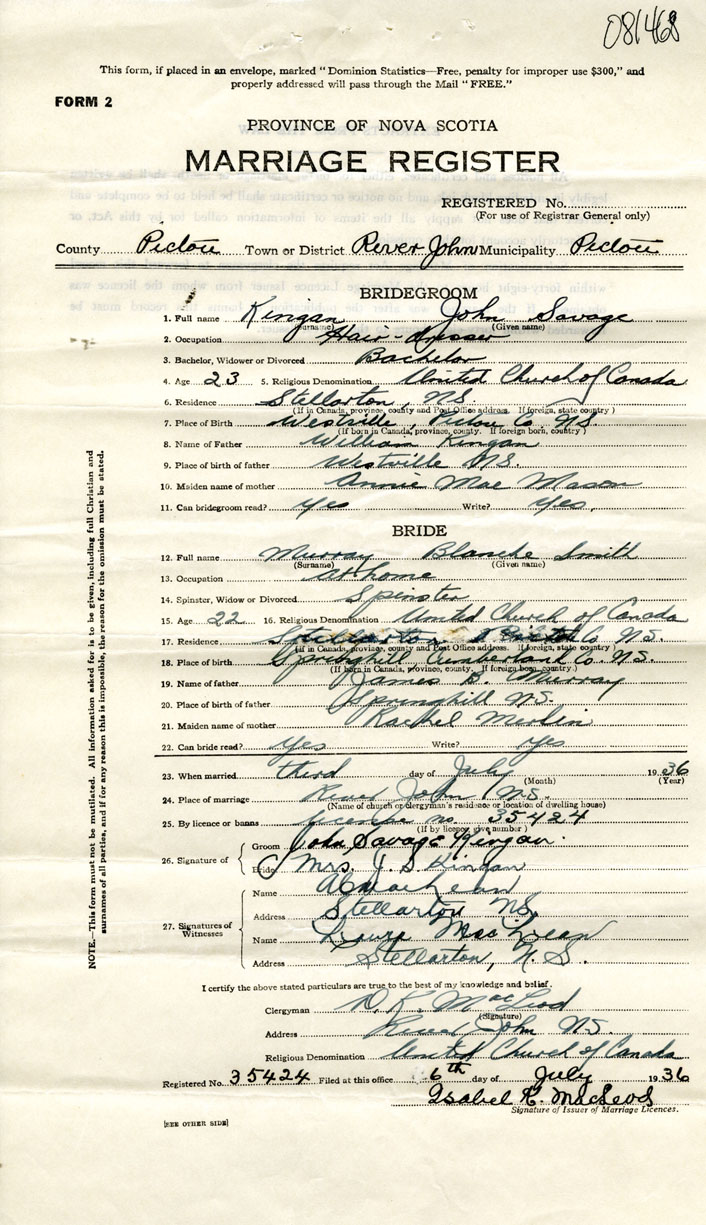 081468
This form, if placed in an envelope, marked "Dominion Statistics—Free, penalty for improper use $300," and
properly addressed will pass through the Mail "FREE."
FORM 2
PROVINCE OF NOVA SCOTIA
MARRIAGE REGISTER
REGISTERED No.
(For use of Registrar General only)
County Pictou Town or District River John Municipality Pictou
BRIDEGROOM
1. Full name Kingan John Savage
(Surname) (Given name)
2. Occupation Hair-dresser
3. Bachelor, Widower or Divorced Bachelor
4. Age 23 5. Religious Denomination United Church of Canada
6. Residence Stellarton, NS.
(If in Canada, province, county and Post Office address. If foreign, state country)
7. Place of Birth Westville, Pictou Co NS.
(If born in Canada, province, county. If foreign born, country)
8. Name of Father William Kingan
9. Place of birth of father Westville NS.
10. Maiden name of mother Annie Mae Mason
11. Can bridegroom read? yes Write? Yes.
BRIDE
12. Full name Murray Blanche Smith
(Surname) (Given name)
13. Occupation At home
14. Spinster, Widow or Divorced Spinster
15. Age 22 16. Religious Denomination United Church of Canada
17. Residence Stellarton Co N.S.
(If in Canada, province, county and Post Office address. If foreign, state country)
18. Place of birth Springhill, Cumberland Co. N.S.
(If born in Canada, province, county. If foreign born, country)
19. Name of father James B. Murray
20. Place of birth of father Springhill NS.
21. Maiden name of mother Rachel
22. Can bride read? yes Write? yes
23. When married third day of July 1936
(Month) (Year)
24. Place of marriage River John N.S.
(Name of church or clergyman's residence or location of dwelling house)
25. By licence or banns license no. 35424
(If by licence, give number)
26. Signature of
Groom John Savage Kingan.
Bride Mrs. J. S. Kingan
27. Signatures of Witnesses
Name
Address Stellarton NS,
Name MacLean
Address Stellarton, N.S.
I certify the above stated particulars are true to the best of my knowledge and belief.
Clergyman D. K. MacLeod
(Signature)
Address River John NS.
Religious Denomination United Church of Canada
Registered No. 35424 Filed at this office 6th day of July 1936
Isabel R. MacLeod
Signature of Issuer of Marriage Licences.
[SEE OTHER SIDE]
NOTE.—This form must not be mutilated. All information asked for is to be given, including full Christian and
surnames of all parties, and if for any reason this is impossible, the reason for the omission must be stated.